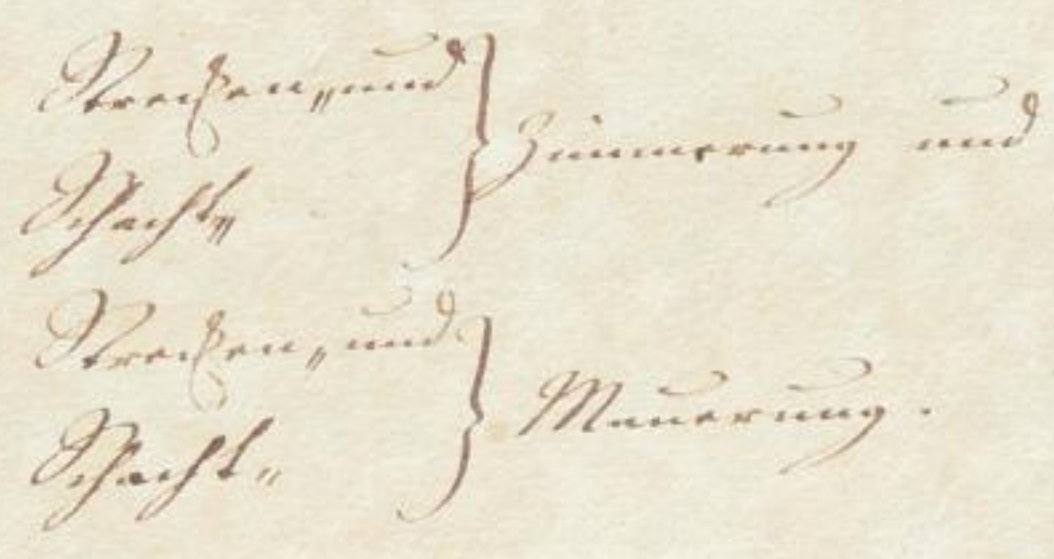 Strecken„ und
Schacht„
Zimmerung und
Strecken„ und
Schacht„
Mauerung.